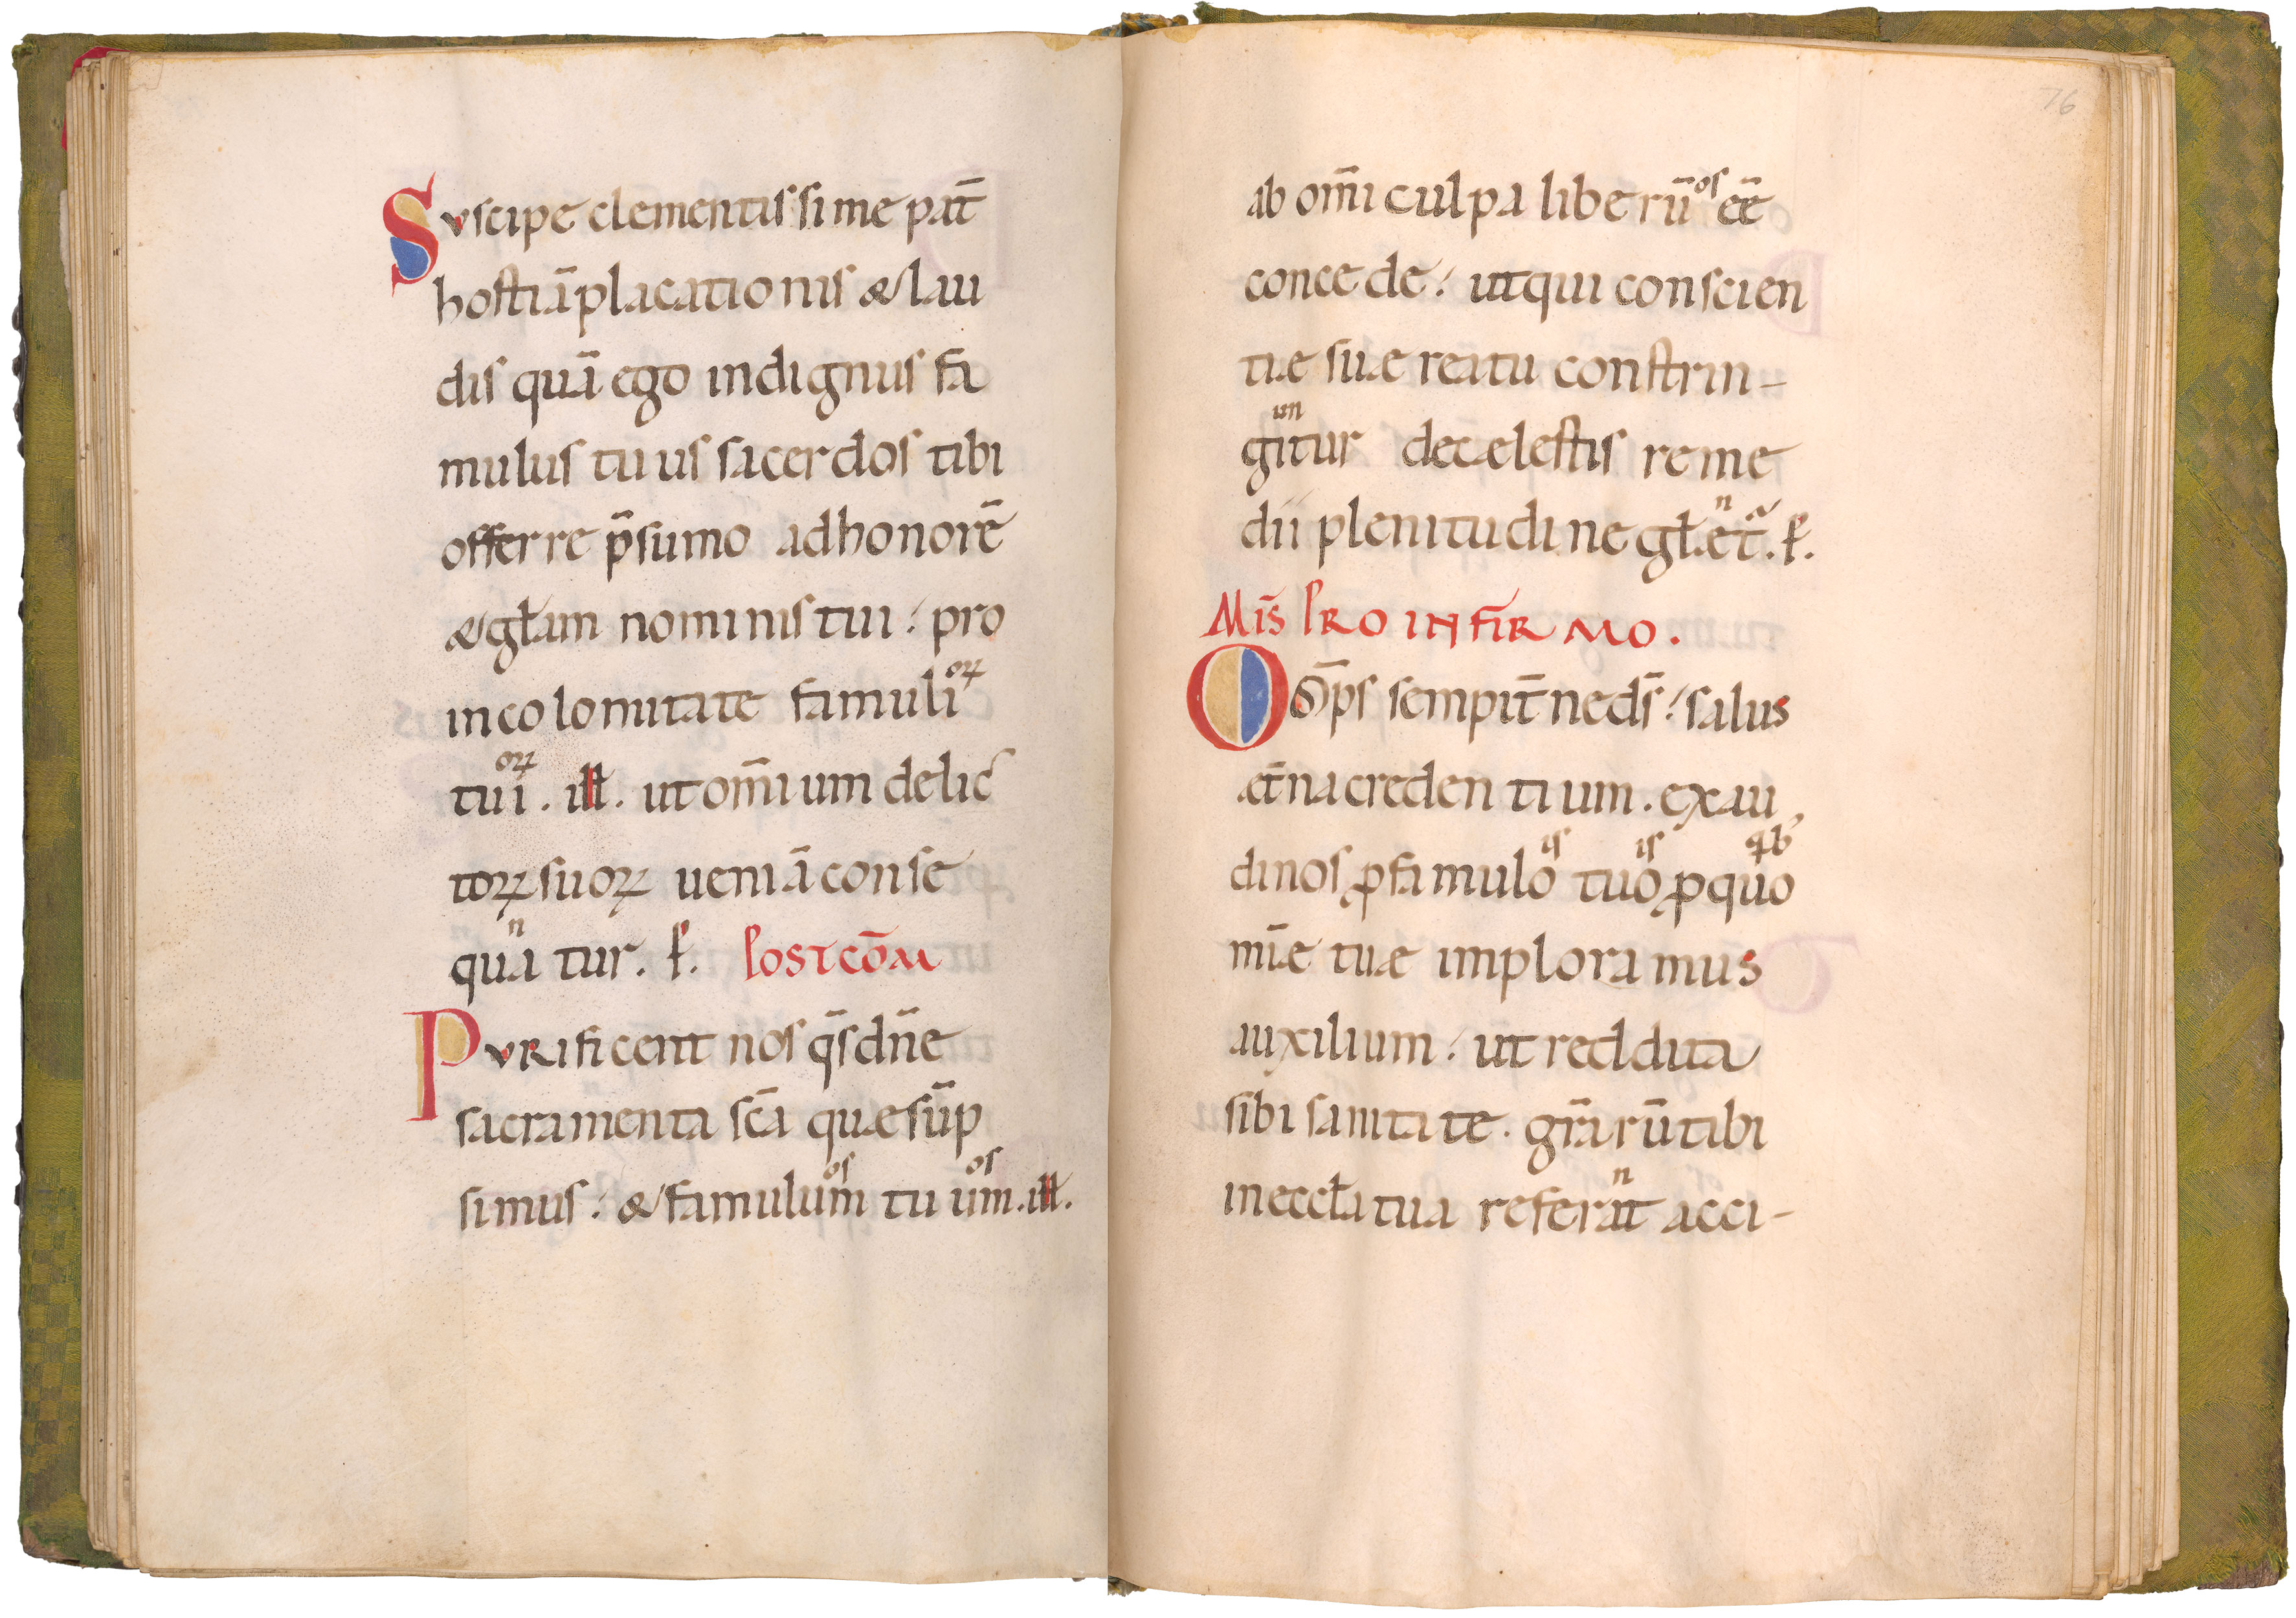 Suscipe clementissime pat̄
hostiā placationis & lau
dis quā ego indignus fa
mulus tuus sacerdos tibi
offerre p̄sumo ad honorē
& gl̄am nominis tui pro
incolomitate famuli oꝝ
tui oꝝ . ill̄. ut om̄ium delic
toꝝ suoꝝ ueniā conse
qua n tur. P. Postcōm
Purificent nos q̄s dn̄e
sacramenta sc̄a quæ sūp
simus & famulum os tuum os . ill̄.
76
ab om̄i culpa liberū os eē
concede ut qui conscien
tiæ suæ reatu constrin-
gitur un de cælestis reme
dii plenitudine gl̄æt̄ n . P.
Mis̄ Pro infirmo.
Om̄ps sempit̄ne ds̄ salus
æt̄na credentium. exau
di nos ꝓ famulo is tuo is ꝓ quo qb'
mīæ tuæ imploramus
auxilium ut reddita
sibi sanitate. gr̄arū tibi
in eccl̄a tua referat n acci-